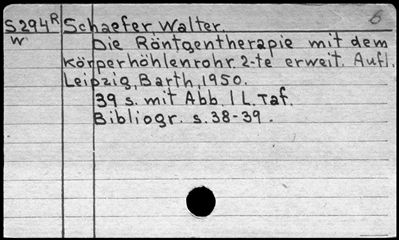 S294R Schaefer Walter. 6
W Die Röntgentherapie mit dem
Körperhöhlenrohr 2-te erweit. Aufl.
Leipzig, Barth, 1950.
39 s. mit Abb. 1 L. Taf.
Bibliogr. s. 38-39.